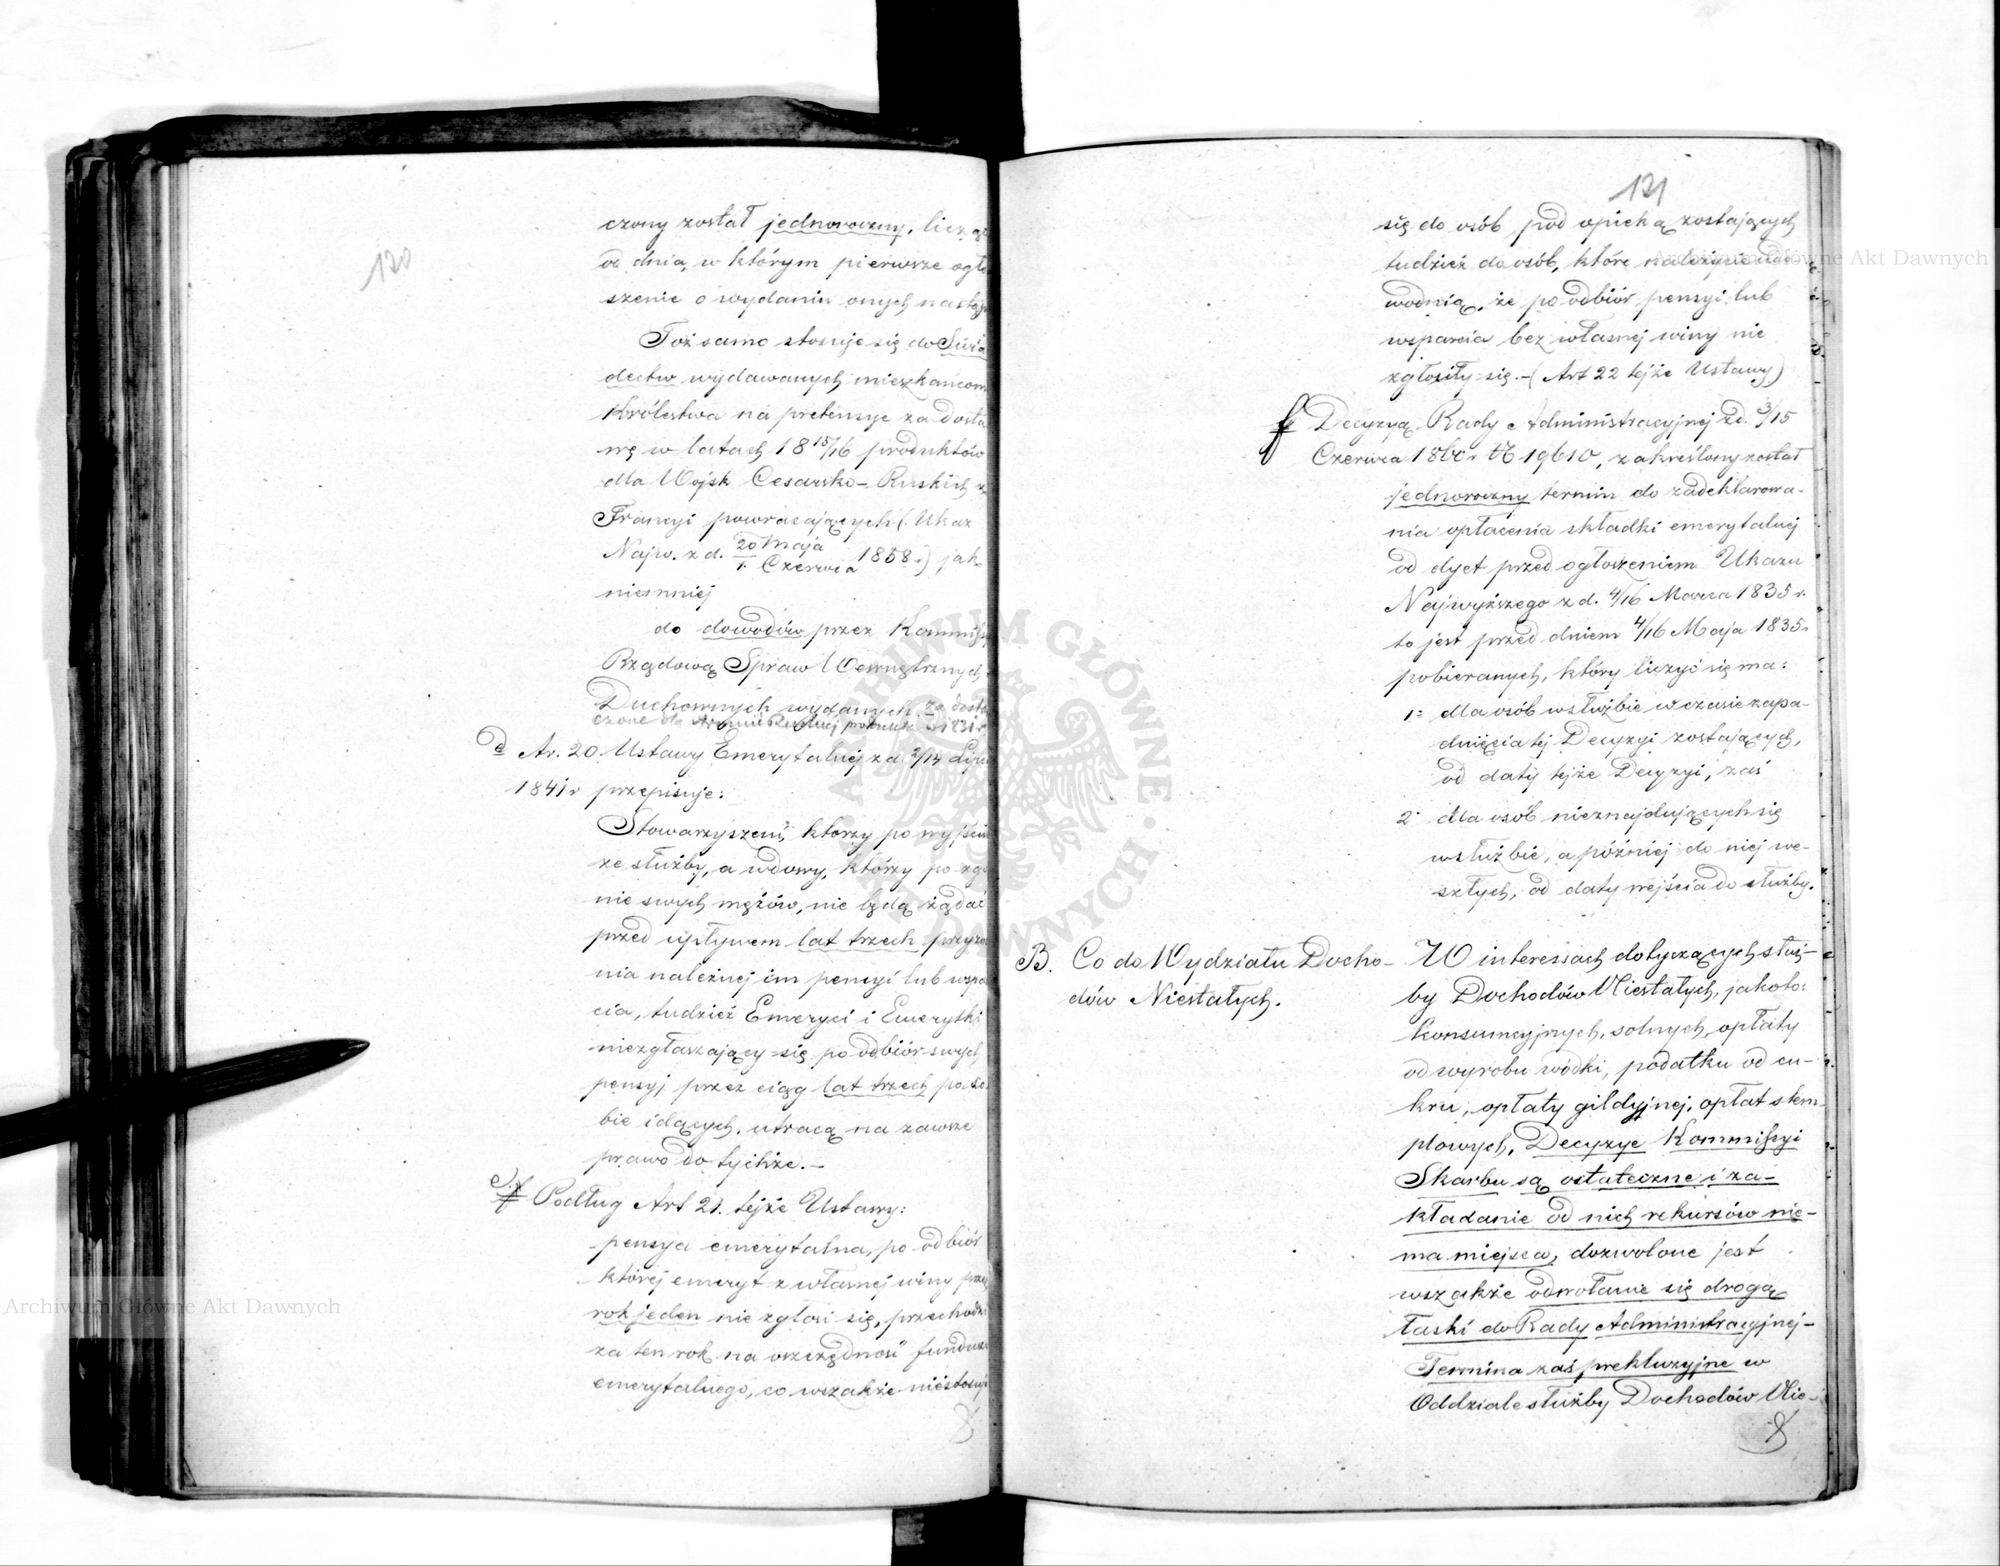 120
czony został jednoroczny, licząc
od dnia, w którym pierwsze ogło
szenie o wydaniu onych nastąpi
Toż samo stosuje się do Świa
dectw wydawanych mieszkańcom
Królestwa na pretensye za dosta
wę w latach 18 15/16 produktów
dla Wojsk Cesarsko-Ruskich z
Francyi powracających (Ukaz
Najw. z d. 20 Maja / 1 Czerwca 1858 r.) jak
niemniej
do dowodów przez Kommissyę
Rządową Spraw Wewnętrznych
Duchownych wydanych, za dostar
czone dla Armii Ruskiej w 1831 r.
d Ar. 20 Ustawy Emerytalnej z d. 2/14 Lipca
1841 r przepisuje:
Stowarzyszeni, ktorzy po wyjściu
ze służby, a wdowy, którzy po zgo
nie swych mężów, nie będą żądać
przed upływem lat trzech przyzna
nia należnej im pensyi lub wspar
cia, tudzież Emeryci i Emerytki
niezgłaszający się po odbiór swych
pensyj przez ciąg lat trzech po so
bie idących, utracą na zawsze
prawo do tychże.—
Podług Art 21. tejże Ustawy:
pensya emerytalna, po odbiór
której emeryt z własnej winy przez
rok jeden nie zgłosi się, przechodzi
za ten rok na oszczędność funduszu
emerytalnego, co wszakże niestosuje
121
się do osób pod opieką zostających
tudzież do osób, które należycie udo-
wodnią, że po odbiór pensyi lub
wsparcia bez własnej winy nie
zgłosiły się.—(Art 22 tejże Ustawy)
f Decyzyą Rady Administracyjnej z d. 3/15
Czerwca 1860 r. № 19610, zakreślony został
jednoroczny termin do zadeklarowa-
nia opłacenia składki emerytalnej
od dyet przed ogłoszeniem Ukazu
Najwyższego z d. 4/16 Marca 1835 r.
to jest przed dniem 4/16 Maja 1835 r.
pobieranych, który liczyć się ma:
1: dla osób w służbie w czasie zapa-
dnięcia tej Decyzyi zostających,
od daty tejże Decyzyi, zaś
2. dla osób nieznajdujących się
w służbie, a później do niej we-
szłych, od daty wejścia do służby.
B. Co do Wydziału Docho-
dów Niestałych.
W interessach dotyczących służ-
by Dochodów Niestałych, jakoto:
konsumcyjnych, solnych, opłaty
od wyrobu wódki, podatku od cu-
kru, opłaty gildyjnej, opłat stem-
plowych, Decyzye Kommissyi
Skarbu są ostateczne i za-
kładanie od nich rekursów nie-
ma miejsca, dozwolone jest
wszakże odwołanie się drogą
łaski do Rady Administracyjnej—
Termina zaś prekluzyjne w
Oddziale służby Dochodów Nie-